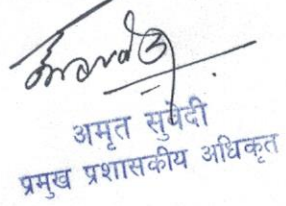 अमृत सुवेदी
प्रमुख प्रशासकीय अधिकृत